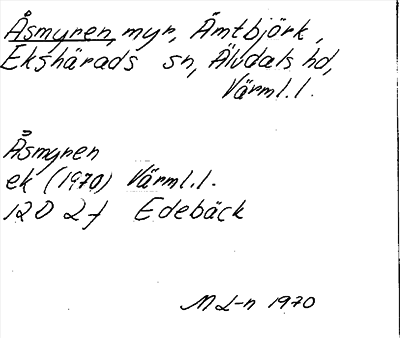 Åsmyren, myr, Ämtbjörk,
Ekshärads sn, Älvdals hd,
Värml.l.
Åsmyren
ek (1970) Värml.l.
12D 2f Edebäck
M L-n 1970